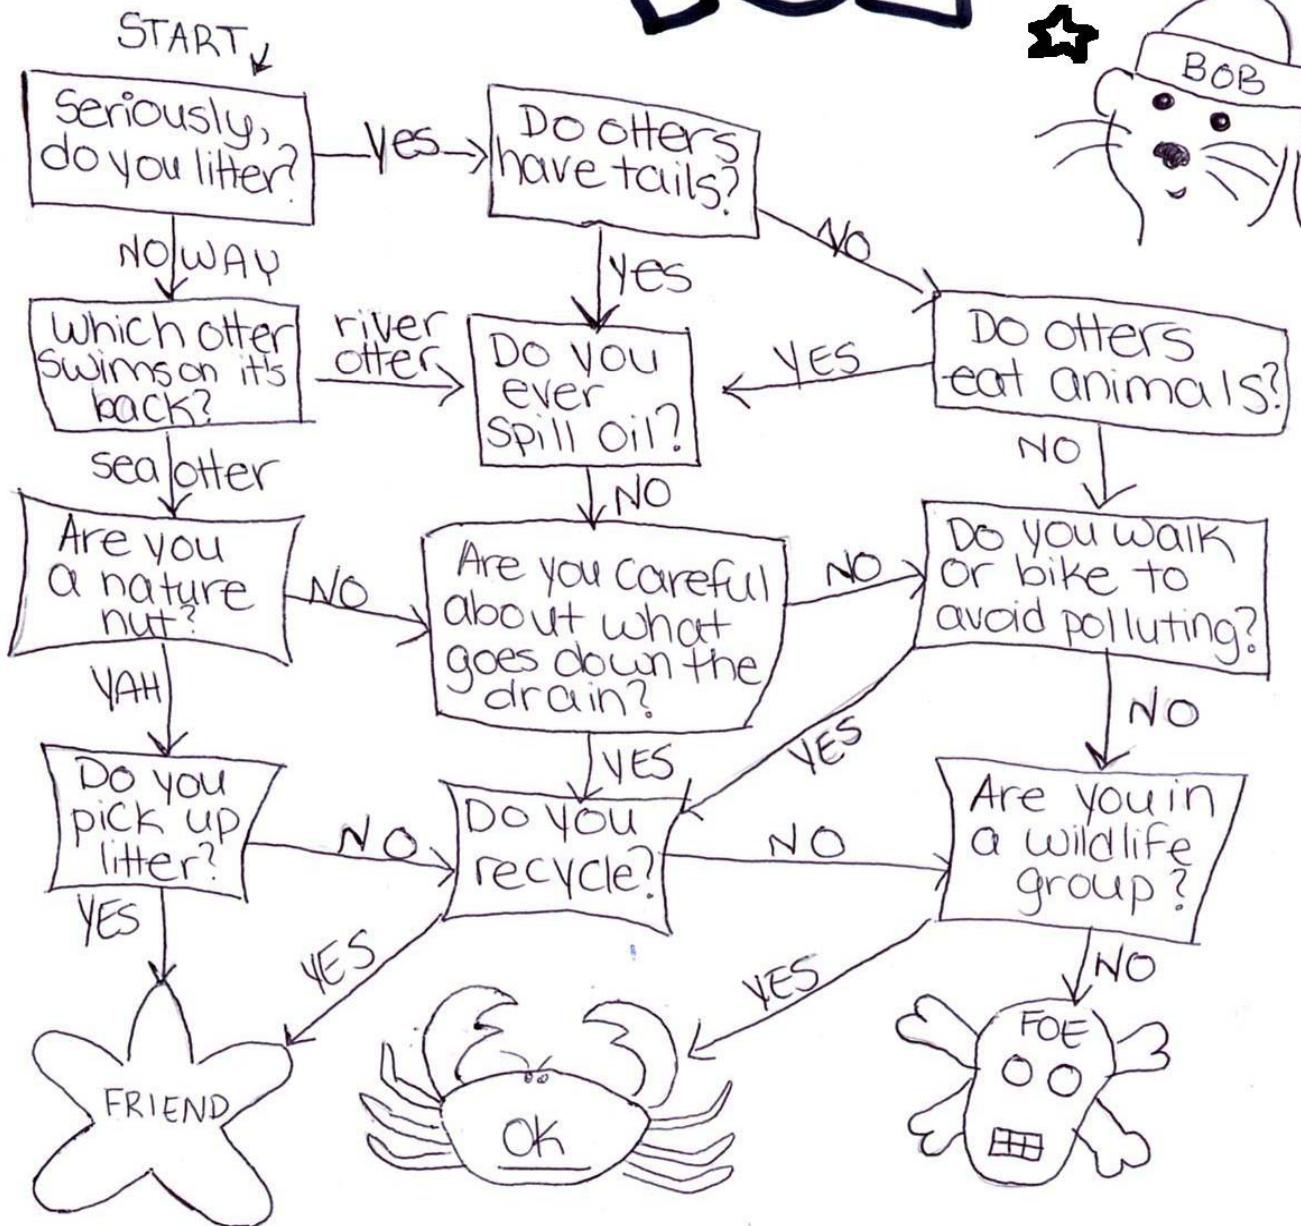 START
BOB
Seriously,
do you litter?
Yes
Do otters
have tails?
NO WAY
yes
NO
Which otter
swims on it's
back?
river
otter
Do you
ever
spill oil?
YES
Do otters
eat animals?
sea otter
NO
NO
Are you
a nature
nut?
NO
Are you careful
about what
goes down the
drain?
NO
Do you walk
or bike to
avoid polluting?
YAH
YES
YES
NO
Do you
pick up
litter?
NO
Do you
recycle?
NO
Are you in
a wildlife
group?
YES
YES
YES
NO
FRIEND
OK
FOE